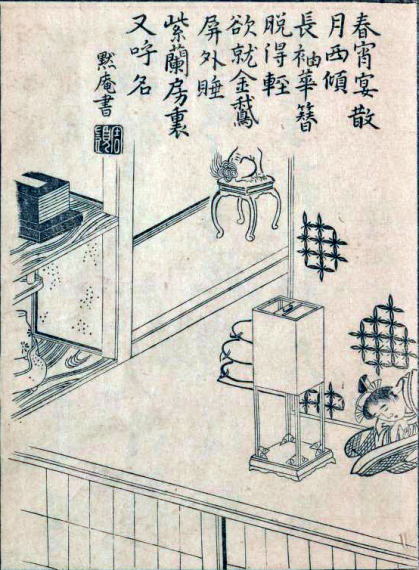 春宵宴散
月西傾
長袖華簪
脱得輕
欲就金鵞
屏外睡
紫蘭房裏
又呼名
默庵書